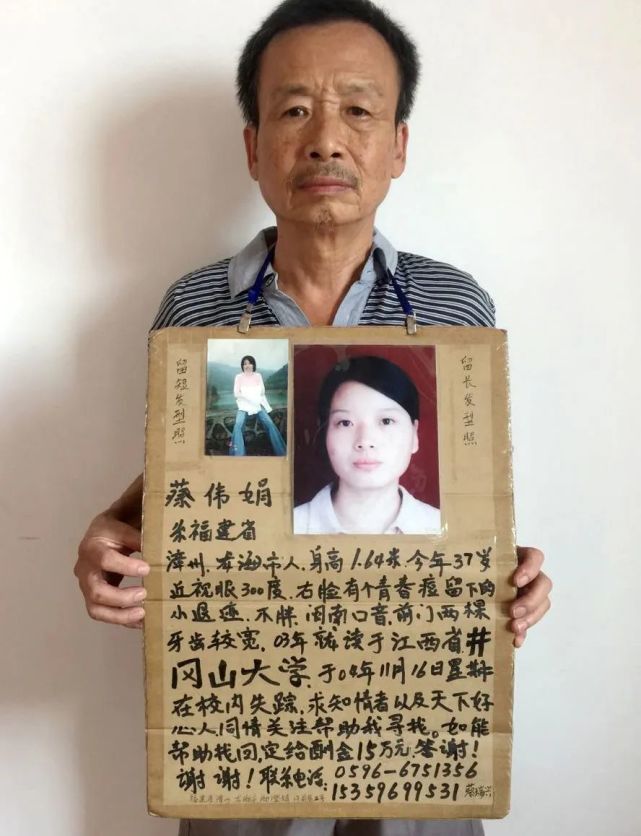 留短发型照
留长发型照
蔡伟娟
系福建省
漳州.龙海市人.身高1.64米.今年37岁
近视眼300度.右脸有个青春痘留下的
小退迹.不胖.闽南口音.前门两棵
牙齿较宽.03年就读于江西省井
冈山大学.于04年11月16日星期
在校内失踪.求知情者以及天下好
心人同情关注帮助我寻找。如能
帮助找回,定给酬金15万元.答谢!
谢谢!联系电话:0596-6751356
15359699531